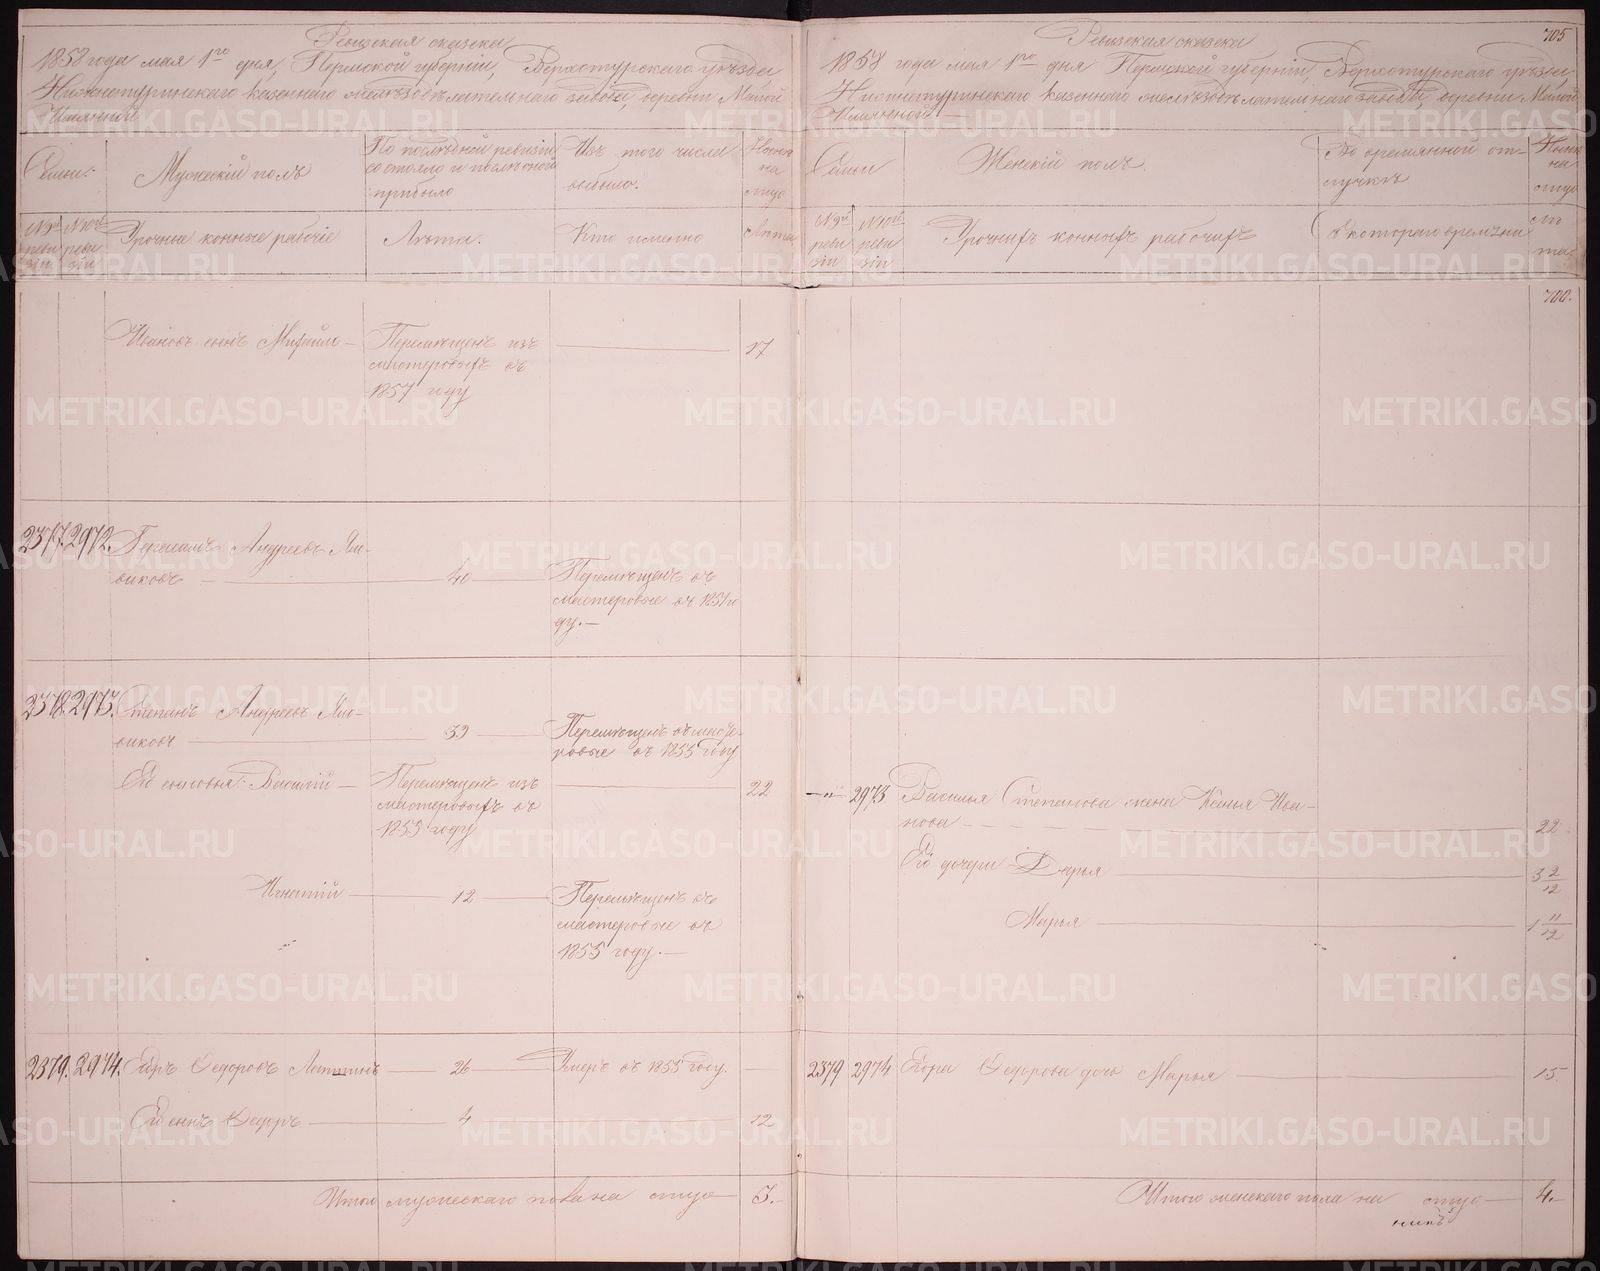 Ревизская сказка
1858 года мая 1го дня, Пермской губернии, Верхотурскаго уѣзда
Нижнетуринскаго казеннаго желѣзодѣлательнаго завода, деревни Малой
Именной
Семьи. Мужескій полъ По послѣдней ревизіи состояло и послѣ оной прибыло Изъ того числа выбыло. Нынѣ на лицо
№ 9й ревизіи № 10й ревизіи Урочные конные рабочіе Лѣта. Кто именно Лѣта
Ивановъ сынъ Михаилъ — Перемѣщенъ изъ — 17
мастеровыхъ въ
1857 году
2377. 2972. Андреевъ
— 40 — Перемѣщенъ въ
мастеровые въ 1851 го
ду. —
2378. 2973. Степанъ Андреевъ
— 39 — Перемѣщенъ въ масте-
ровые въ 1855 году
Его сыновья: Василій — Перемѣщенъ изъ — 22
мастеровыхъ въ
1855 году
Игнатій — 12 — Перемѣщенъ въ
мастеровые въ
1855 году. —
2379. 2974. Егоръ Федоровъ — 26 — Умеръ въ 1855 году. —
Его сынъ Федоръ — 4 — 12
Итого мужескаго пола на лицо — 3. —
705
Ревизская сказка
1858 года мая 1го дня Пермской губерніи, Верхотурскаго уѣзда
Нижнетуринскаго казеннаго желѣзодѣлательнаго завода, деревни Малой
Именной —
Семьи Женскій полъ. Во временной отлучкѣ Нынѣ на лицо
№ 9й ревизіи № 10й ревизіи Урочныхъ конныхъ рабочихъ Съ котораго времени Лѣта.
700.
— „ — 2973 Василья Степанова жена Ксенья Ива-
нова — 22
Его дочери Дарья — 3 2/12
Марья — 1 11/12
2379 2974 Егора Федорова дочь Марья — 15
Итого женскаго пола на лицо — 4. —
METRIKI.GASO-URAL.RU